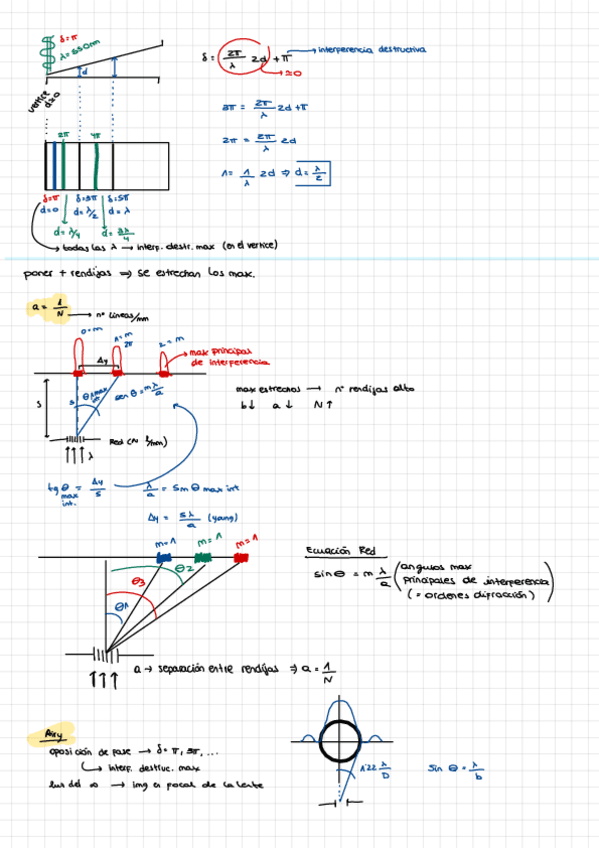 δ=π
λ=550nm
δ = 2π/λ 2d + π → interferencia destructiva
→ ≃0
d
vertice
d≃0
3π = 2π/λ 2d + π
2π = 2π/λ 2d
2π 4π
1 = 1/λ 2d ⇒ d = λ/2
δ=π δ=3π δ=5π
d=0 d=λ/2 d=λ
d=λ/4 d=3λ/4
→ todas las λ → interf. destr. max (en el vertice)
poner + rendijas ⇒ se estrechan los max.
a = 1/N → nº lineas/mm
0=m 1=m 2=m
2π
Δy
→ max principal
de interferencia
S
θ1max
int
sen θ = m λ/a
max estrechos → nº rendijas alto
b↓ a↓ N↑
Red (N l/mm)
λ
tg θ = Δy/s
max
int.
λ/a = sin θ max int
Δy = sλ/a (young)
m=1 m=1 m=1
Ecuación Red
θ2
θ3
θ1
sin θ = m λ/a (angulos max
principales de interferencia
(= ordenes difracción))
a → separación entre rendijas ⇒ a = 1/N
Airy
oposición de fase → δ = π, 3π, ...
→ interf. destruc. max
luz del ∞ → img en focal de la lente
1'22 λ/D
sin θ = λ/b